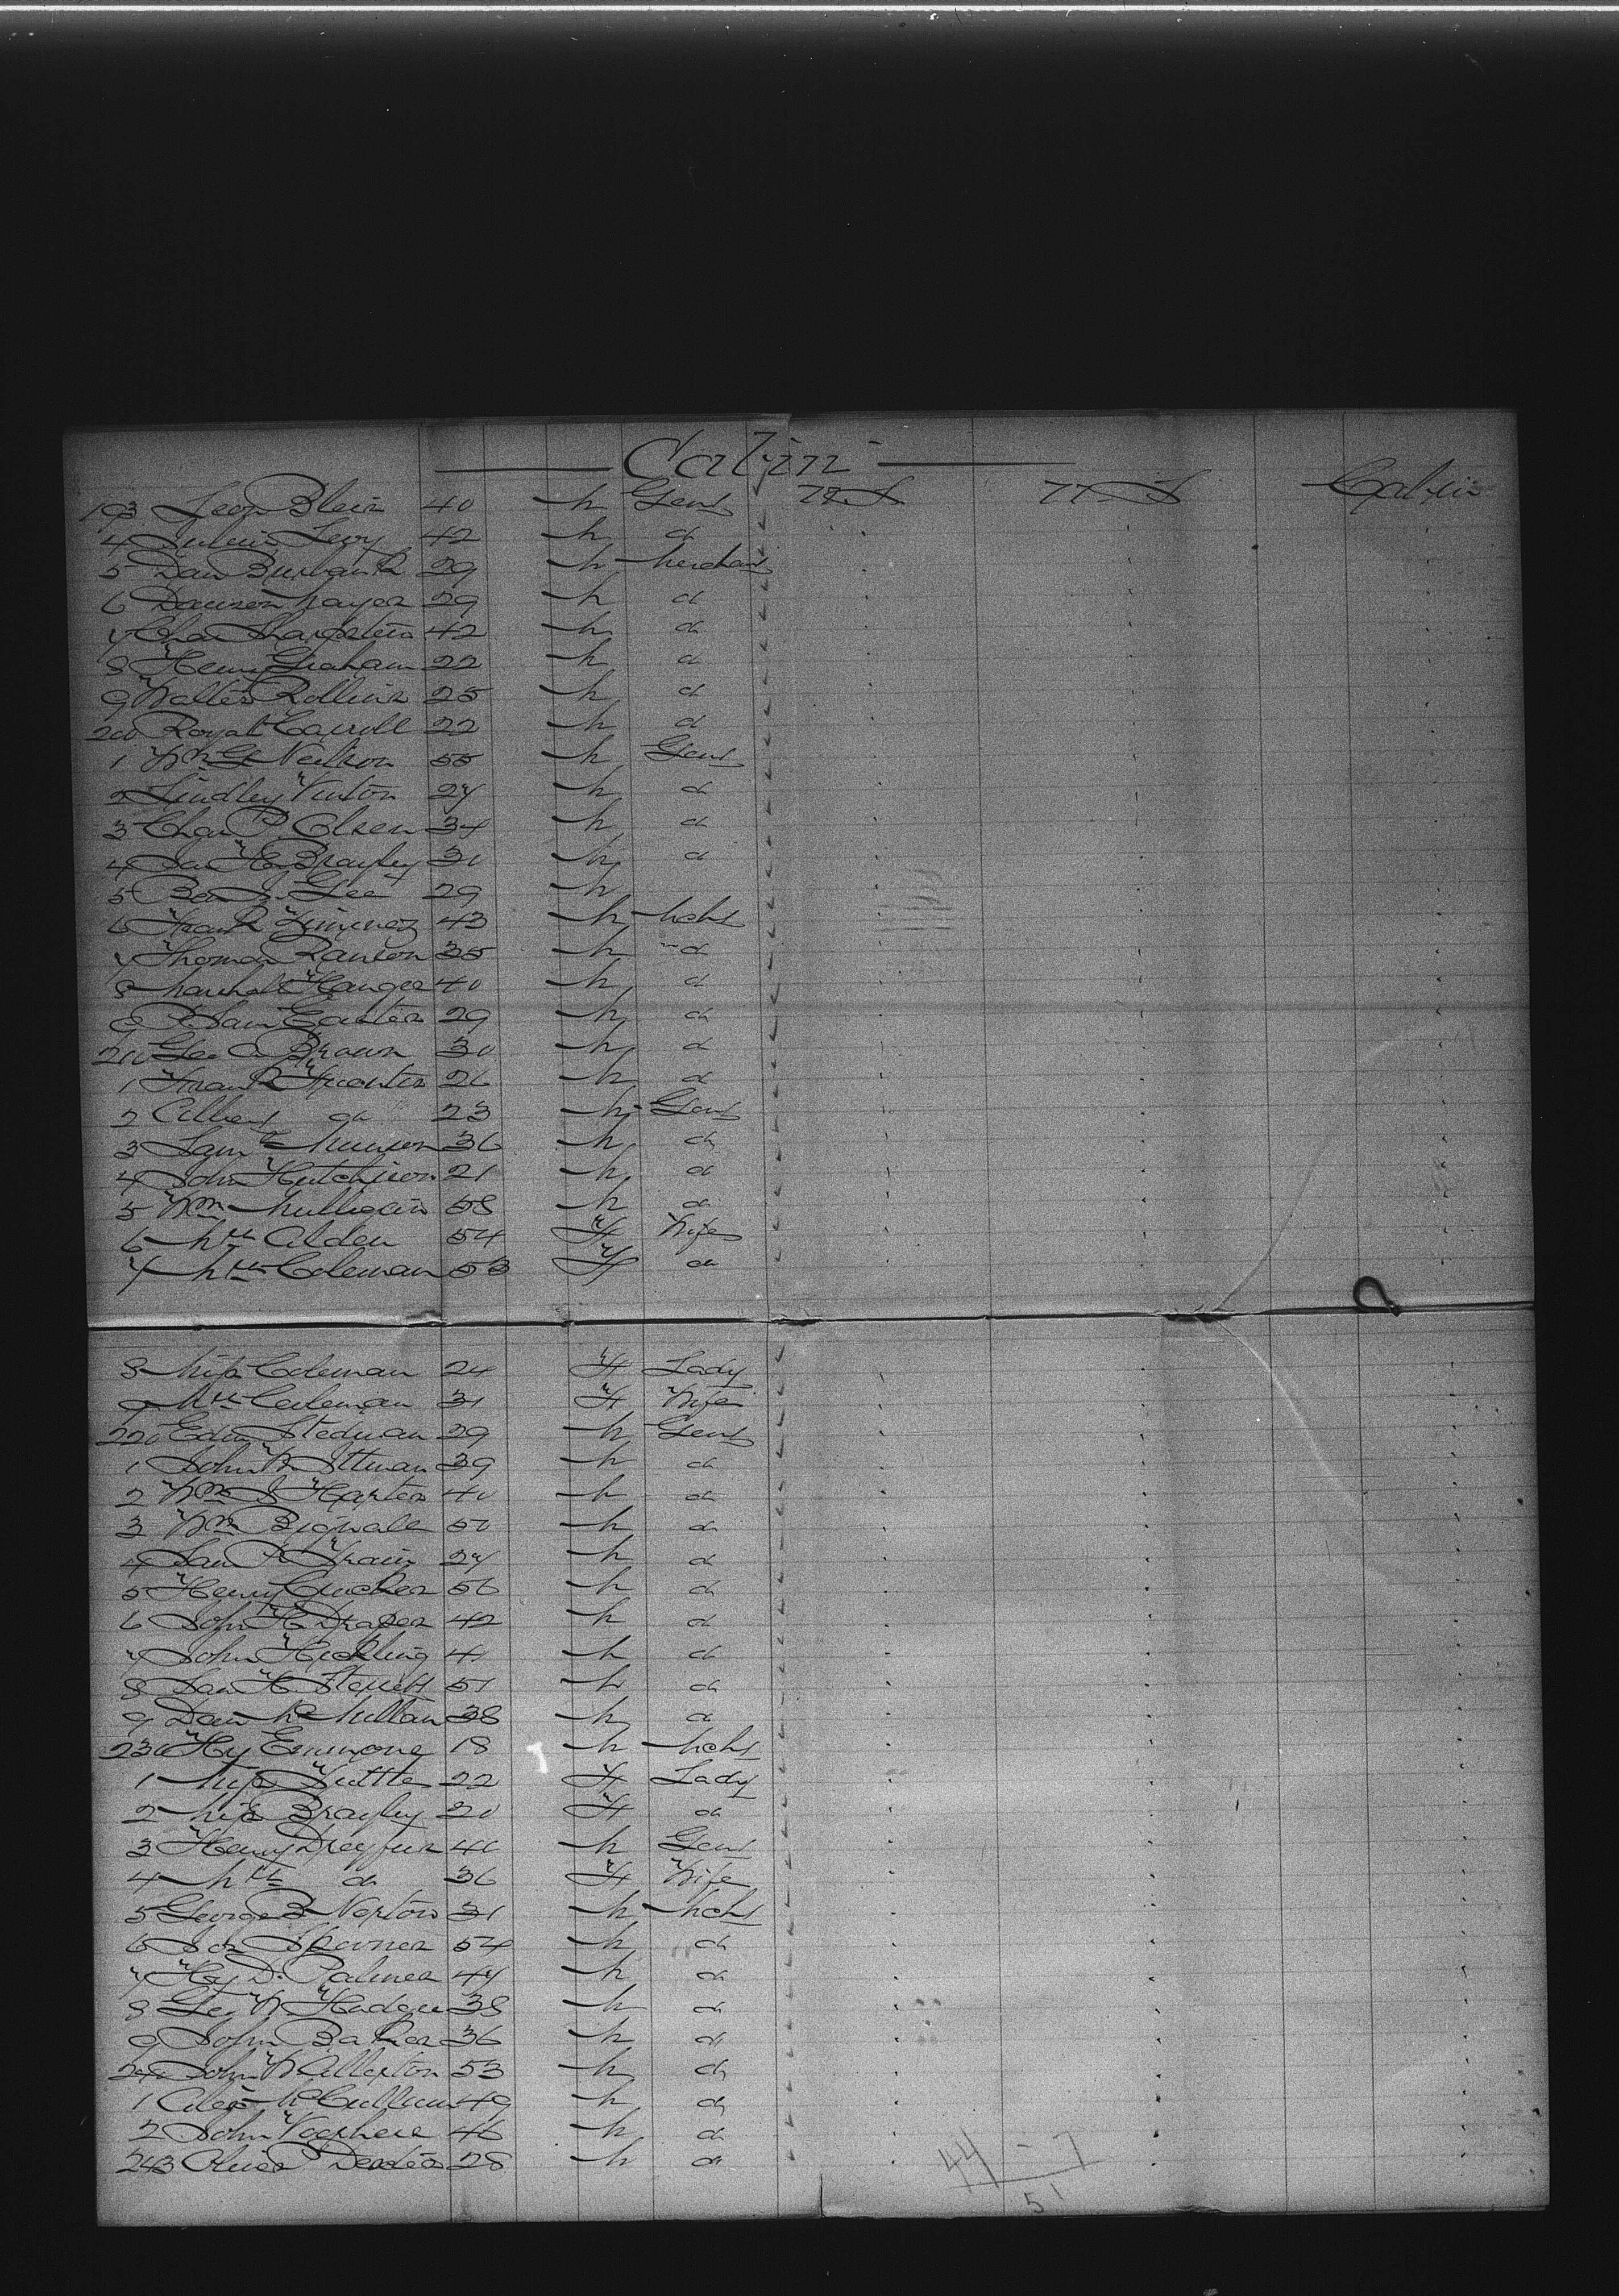 Cabin
193 Leon Blein 40 M Gent U.S. U.S. Cabin
4 Julius Levy 42 M do
5 Dan Burbank 29 M Merchant
6 Dawson Mayer 29 M do
7 Chas 42 M do
8 Henry Graham 22 M do
9 Walter Rollins 25 M do
200 Royal Carroll 22 M do
1 Wm G Neilson 55 M Gent
2 Lindley Vinton 27 M do
3 Chas P. Olsen 34 M do
4 Jas H Brayley 30 M do
5 Ben J. Lee 29 M
6 Frank Jiminez 43 M Mcht
7 Thomas Ranson 35 M do
8 Marshall Hanger 40 M do
9 29 M do
210 Geo A Brown 30 M do
1 Frank Fuentes 26 M do
2 Albert do 23 M Gent
3 Saml Munson 36 M do
4 John Hutchison 21 M do
5 Wm Mulligan 58 M do
6 Mrs Alden 54 F Wife
7 Mrs Coleman 53 F do
8 Miss Coleman 24 F Lady
9 Mrs Coleman 31 F Wife
220 Edw Stedman 29 M Gent
1 John W 39 M do
2 Wm S 40 M do
3 Wm Bignall 50 M do
4 27 M do
5 Henry Crocker 56 M do
6 John H Draper 42 M do
7 John Heckling 41 M do
8 Jas H 51 M do
9 McMillan 38 M do
230 Hy Emmons 18 M Mcht
1 Miss Tuttle 22 F Lady
2 Miss Brayley 20 F do
3 Henry Dreyfus 40 M Gent
4 Mrs do 36 F Wife
5 George B Norton 31 M Mcht
6 Jos Spenner 54 M do
7 Hy D. Palmer 47 M do
8 Geo W Hodges 38 M do
9 John Baker 36 M do
240 John W Allerton 53 M do
1 Alex McCullum 49 M do
2 John 46 M do
243 Oliver 28 M do
44 - 7
51